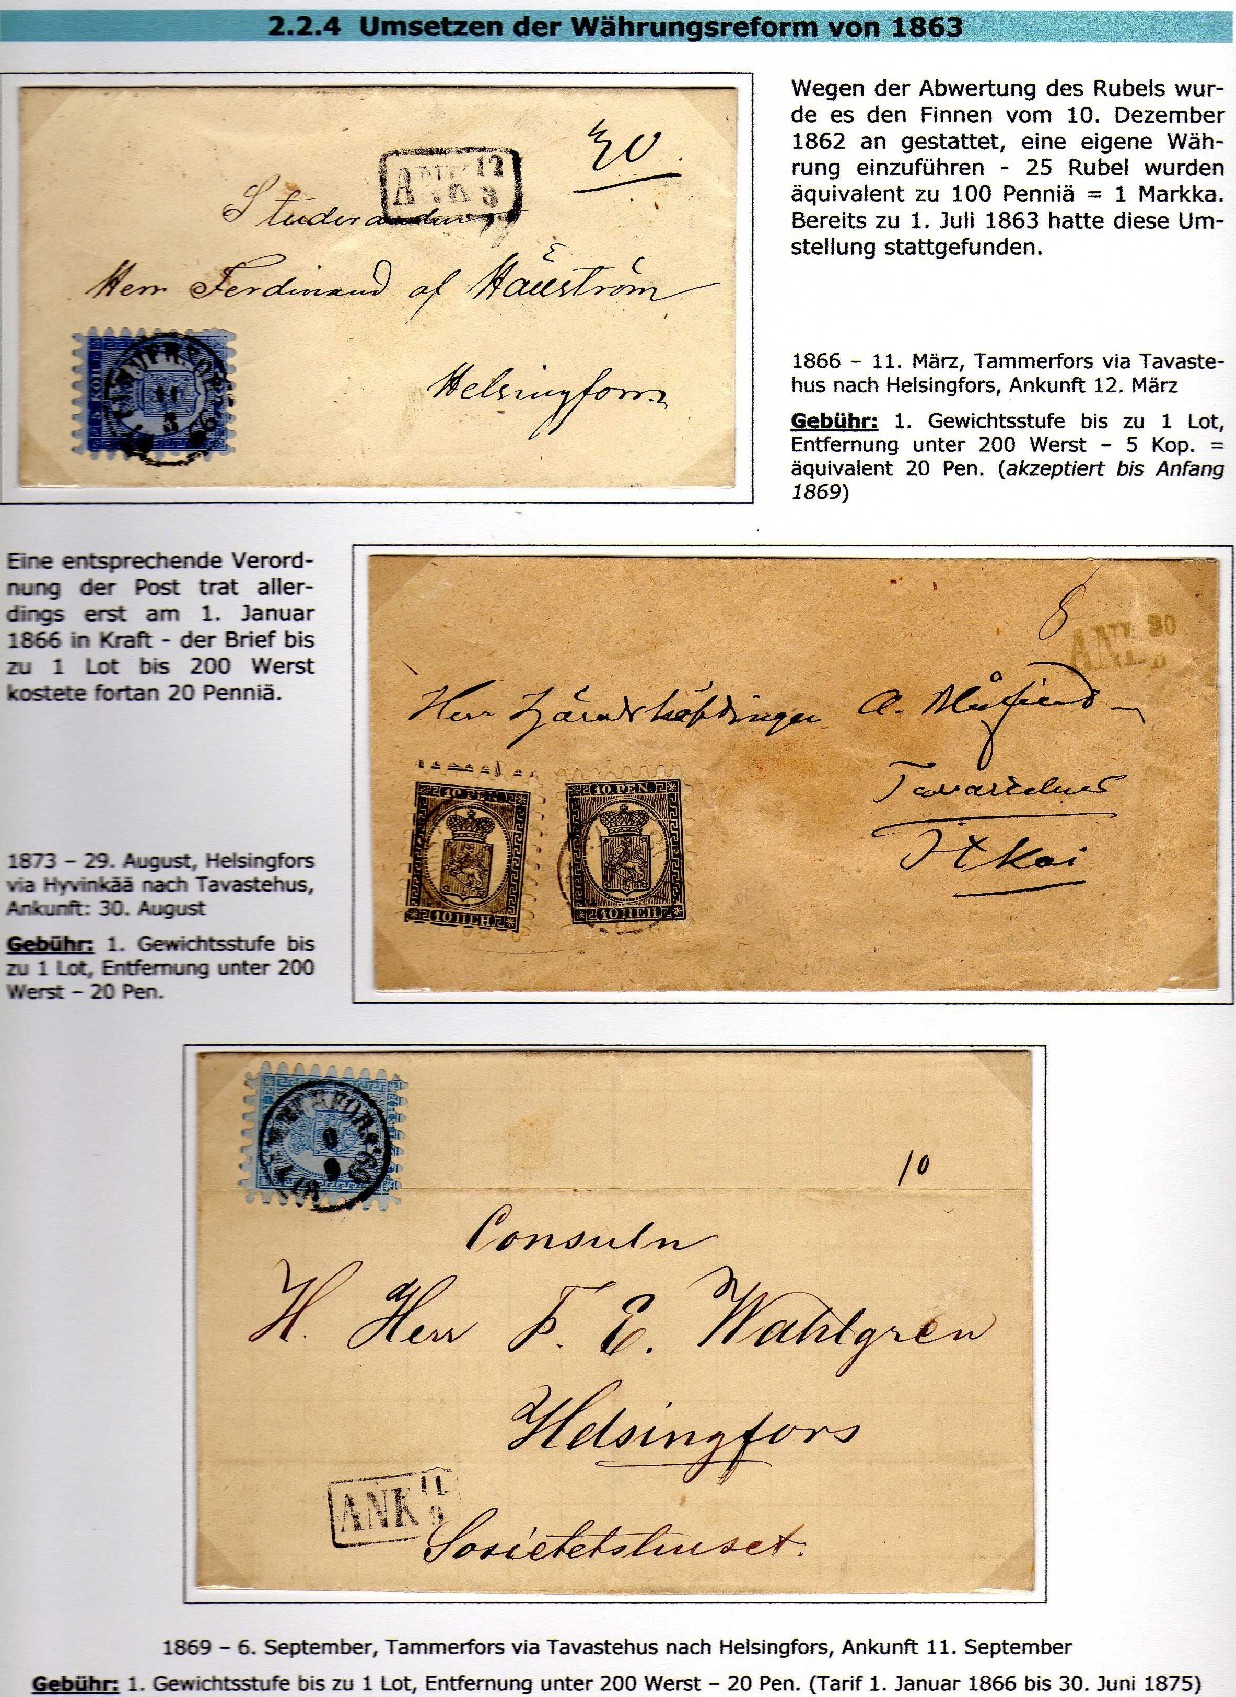 2.2.4 Umsetzen der Währungsreform von 1863
Wegen der Abwertung des Rubels wur-
de es den Finnen vom 10. Dezember
1862 an gestattet, eine eigene Wäh-
rung einzuführen - 25 Rubel wurden
äquivalent zu 100 Penniä = 1 Markka.
Bereits zu 1. Juli 1863 hatte diese Um-
stellung stattgefunden.
ANK 12
3
Herr Ferdinand af
Helsingfors
5 KOP.
TAMMERFORS
11
3
1866 – 11. März, Tammerfors via Tavaste-
hus nach Helsingfors, Ankunft 12. März
Gebühr: 1. Gewichtsstufe bis zu 1 Lot,
Entfernung unter 200 Werst – 5 Kop. =
äquivalent 20 Pen. (akzeptiert bis Anfang
1869)
Eine entsprechende Verord-
nung der Post trat aller-
dings erst am 1. Januar
1866 in Kraft - der Brief bis
zu 1 Lot bis 200 Werst
kostete fortan 20 Penniä.
1873 – 29. August, Helsingfors
via Hyvinkää nach Tavastehus,
Ankunft: 30. August
Gebühr: 1. Gewichtsstufe bis
zu 1 Lot, Entfernung unter 200
Werst – 20 Pen.
8
30
Herr Häradshöfdingen A.
Tavastehus
10.PEN.
10.PEN.
10 ПЕН.
10 ПЕН.
TAMMERFORS
9
10
Consuln
H. Herr F. E. Wahlgren
Helsingfors
ANK 11
9
Societetshuset.
1869 – 6. September, Tammerfors via Tavastehus nach Helsingfors, Ankunft 11. September
Gebühr: 1. Gewichtsstufe bis zu 1 Lot, Entfernung unter 200 Werst – 20 Pen. (Tarif 1. Januar 1866 bis 30. Juni 1875)